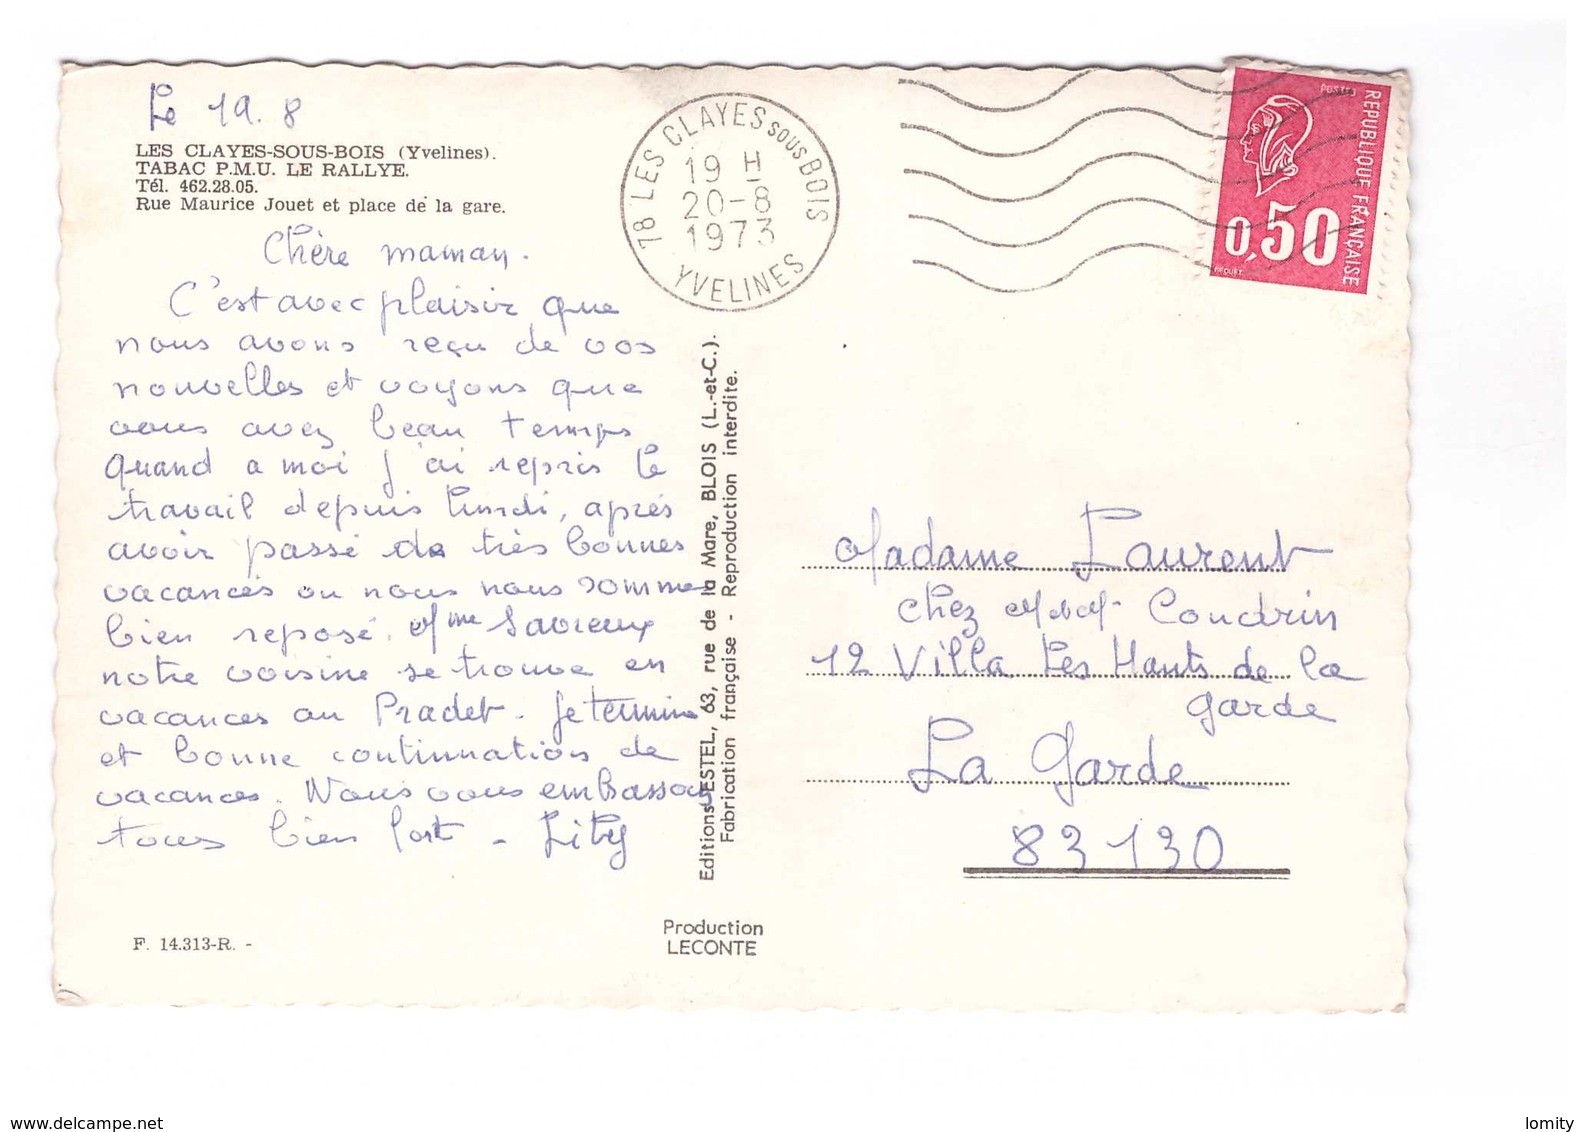 Le 19.8
LES CLAYES-SOUS-BOIS (Yvelines).
TABAC P.M.U. LE RALLYE.
Tél. 462.28.05.
Rue Maurice Jouet et place de la gare.
Chère maman.
C'est avec plaisir que
nous avons reçu de vos
nouvelles et voyons que
vous avez beau temps
quand a moi j'ai repris le
travail depuis lundi, après
avoir passé de très bonnes
vacances ou nous nous sommes
bien reposé. Mme Savreux
notre voisine se trouve en
vacances au Pradet. Je termine
et bonne continuation de
vacances. Nous vous embrassons
tous bien fort - Lily
F. 14.313-R. -
78 LES CLAYES SOUS BOIS
19 H
20-8
1973
YVELINES
Editions ESTEL, 63, rue de la Mare, BLOIS (L.-et-C.).
Fabrication française - Reproduction interdite.
Production
LECONTE
POSTES
REPUBLIQUE FRANÇAISE
0,50
BEQUET
Madame Laurent
chez M et M Coudrin
12 Villa Les Hauts de la
garde
La Garde
83130
www.delcampe.net
lomity